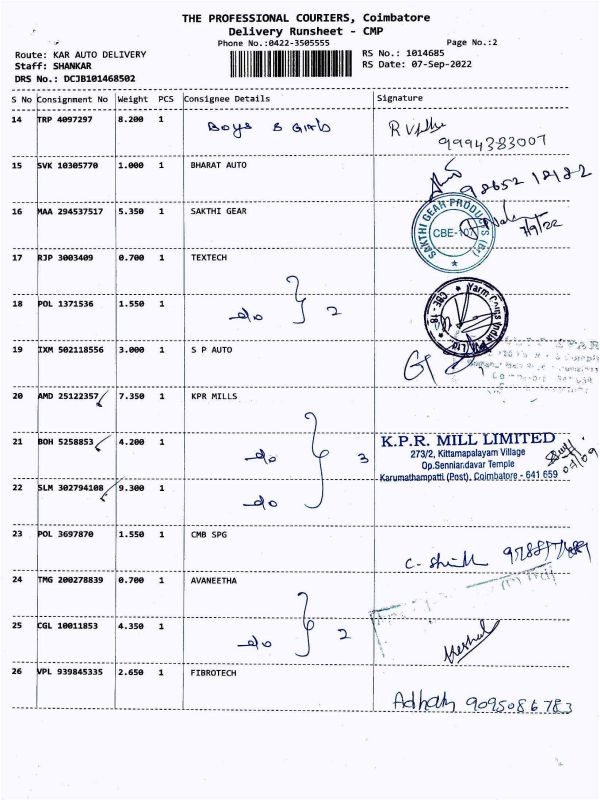 THE PROFESSIONAL COURIERS, Coimbatore
Delivery Runsheet - CMP
Phone No.:0422-3505555
Page No.:2
Route: KAR AUTO DELIVERY
RS No.: 1014685
Staff: SHANKAR
RS Date: 07-Sep-2022
DRS No.: DCJB101468502
S No Consignment No Weight PCS Consignee Details Signature
14 TRP 4097297 8.200 1 Boys & Girls
9994383007
15 SVK 10305770 1.000 1 BHARAT AUTO
98652 18182
16 MAA 294537517 5.350 1 SAKTHI GEAR
SAKTHI GEAR PRODUCTS
CBE-107
7/9/22
17 RJP 3003409 0.700 1 TEXTECH
18 POL 1371536 1.550 1 do 2
Yarm Coms India
CBE-18
19 IXM 502118556 3.000 1 S P AUTO
20 AMD 25122357 7.350 1 KPR MILLS
21 BOH 5258853 4.200 1 do 3
K.P.R. MILL LIMITED
273/2, Kittamapalayam Village
Op.Senniandavar Temple
Karumathampatti (Post), Coimbatore - 641 659
22 SLM 302794108 9.300 1 do
23 POL 3697870 1.550 1 CMB SPG
24 TMG 200278839 0.700 1 AVANEETHA
25 CGL 10011853 4.350 1 do 2
26 VPL 939845335 2.650 1 FIBROTECH
9095086783